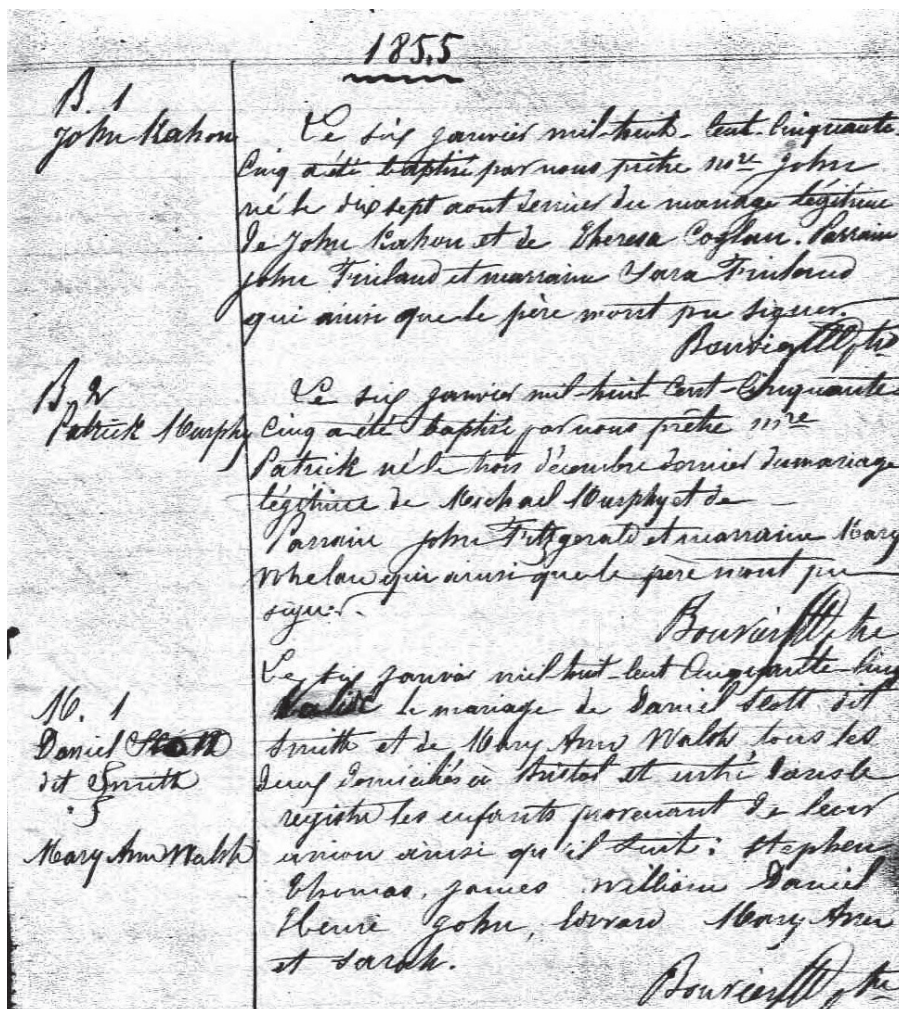 1855
B. 1
John Kahon
Le six janvier mil-huit-cent-cinquante
cinq a été baptisé par nous prêtre mre John
né le dix sept aout dernier du mariage légitime
de John Kahon et de Theresa Coglan. Parrain
John Finland et marraine Sara Finland
qui ainsi que le père n'ont pu signer.
Bouvier ptre
B. 2
Patrick Murphy
Le six janvier mil-huit cent-cinquante
cinq a été baptisé par nous prêtre mre
Patrick né le trois décembre dernier du mariage
légitime de Michael Murphy et de —
Parrain John Fitzgerald et marraine Mary
Whelan qui ainsi que le père n'ont pu
signer.
Bouvier ptre
M. 1
Daniel Scott
dit Smith
&
Mary Ann Walsh
Le six janvier mil-huit-cent cinquante-cinq
le mariage de Daniel Scott dit
Smith et de Mary Ann Walsh tous les
deux domiciliés à Bristol et entré dans le
registre les enfants provenant de leur
union ainsi qu'il suit: Stephen
Thomas, James, William Daniel
Henri John, Edward Mary Ann
et Sarah.
Bouvier ptre